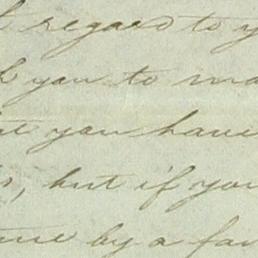 regard to y
you to ma
you have
, but if you
by a fav